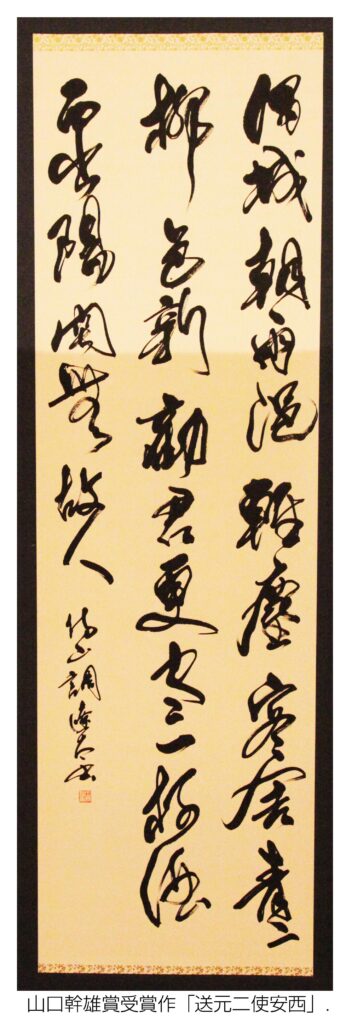 渭城朝雨浥軽塵客舎青々
柳色新勧君更尽一杯酒
西出陽関無故人 傅山調
山口幹雄賞受賞作「送元二使安西」.